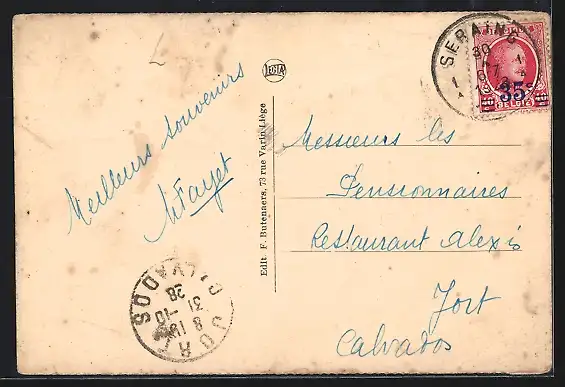 Meilleurs souvenirs
M Fayet
LEGIA
Edit F. Butenners, 73 rue Varin Liège
SERAING
30
35c
BELGIË
Messieurs les
Pensionnaires
Restaurant Alexis
Jort
Calvados
JORT
CALVADOS
8
31 -10
28